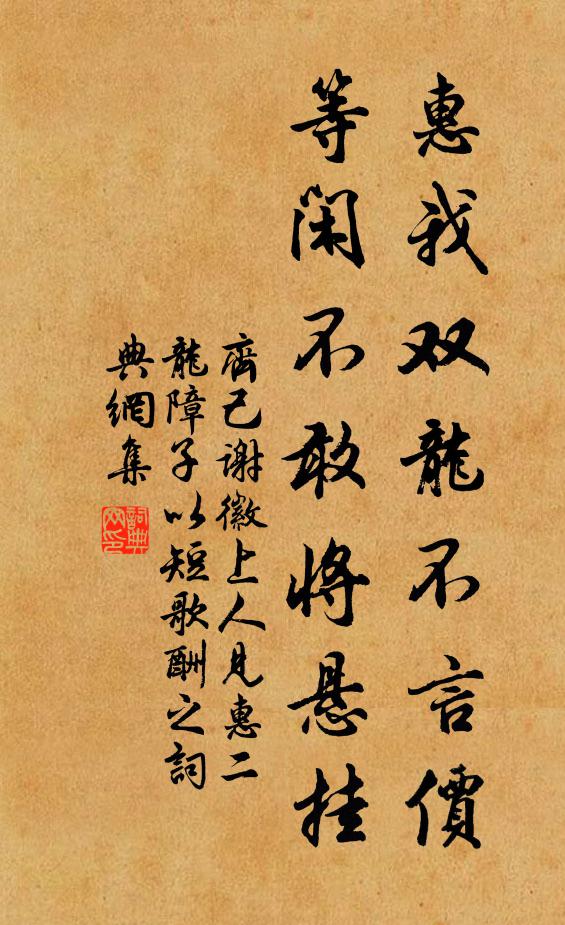 惠我双龍不言價
等閑不敢將悬挂
齊己谢徽上人見惠二
龍障子以短歌酬之詞
典網集
詞典
网印